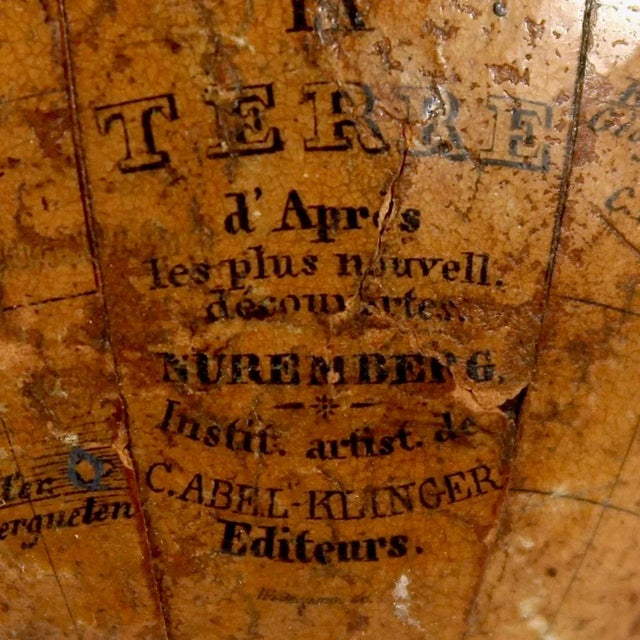 LA
TERRE
d'Après
les plus nouvell.
découvertes
NUREMBERG.
Instit. artist. de
C. ABEL-KLINGER
Editeurs.